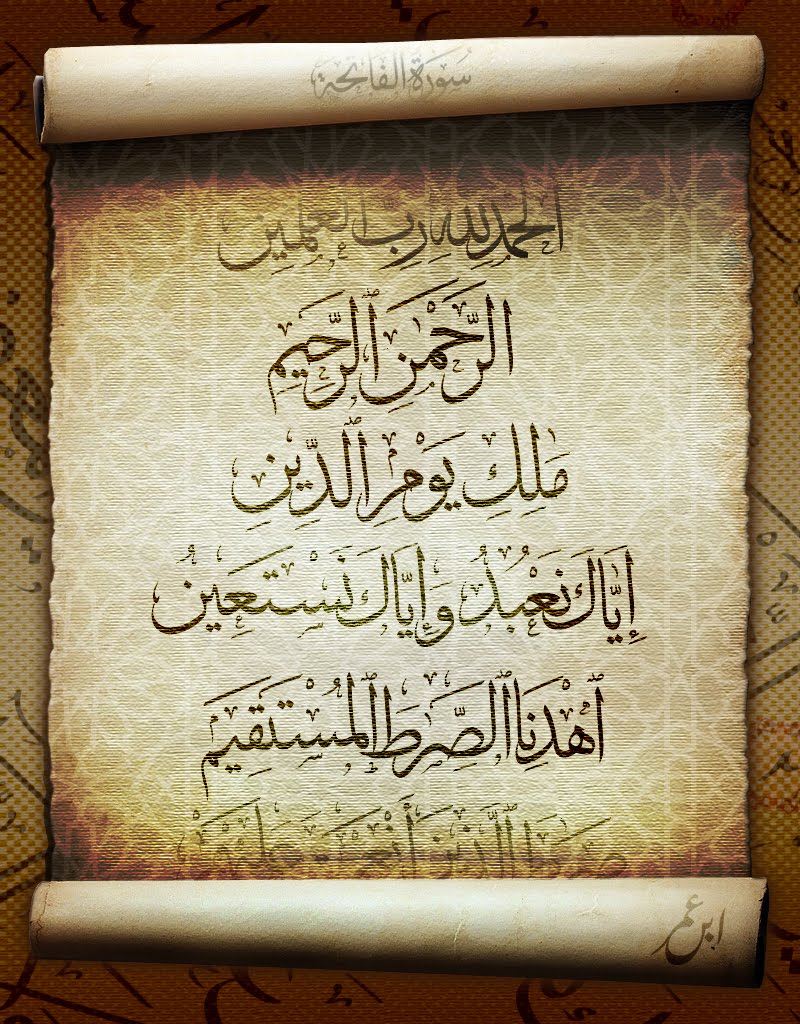 سورة الفاتحة
الحمد لله رب العلمين
الرَّحْمٰنِ ٱلرَّحِيمِ
مَٰلِكِ يَوْمِ ٱلدِّينِ
إِيَّاكَ نَعْبُدُ وَإِيَّاكَ نَسْتَعِينُ
ٱهْدِنَا ٱلصِّرَٰطَ ٱلْمُسْتَقِيمَ
صرط ٱلذين أنعمت عليهم
ابن عمر